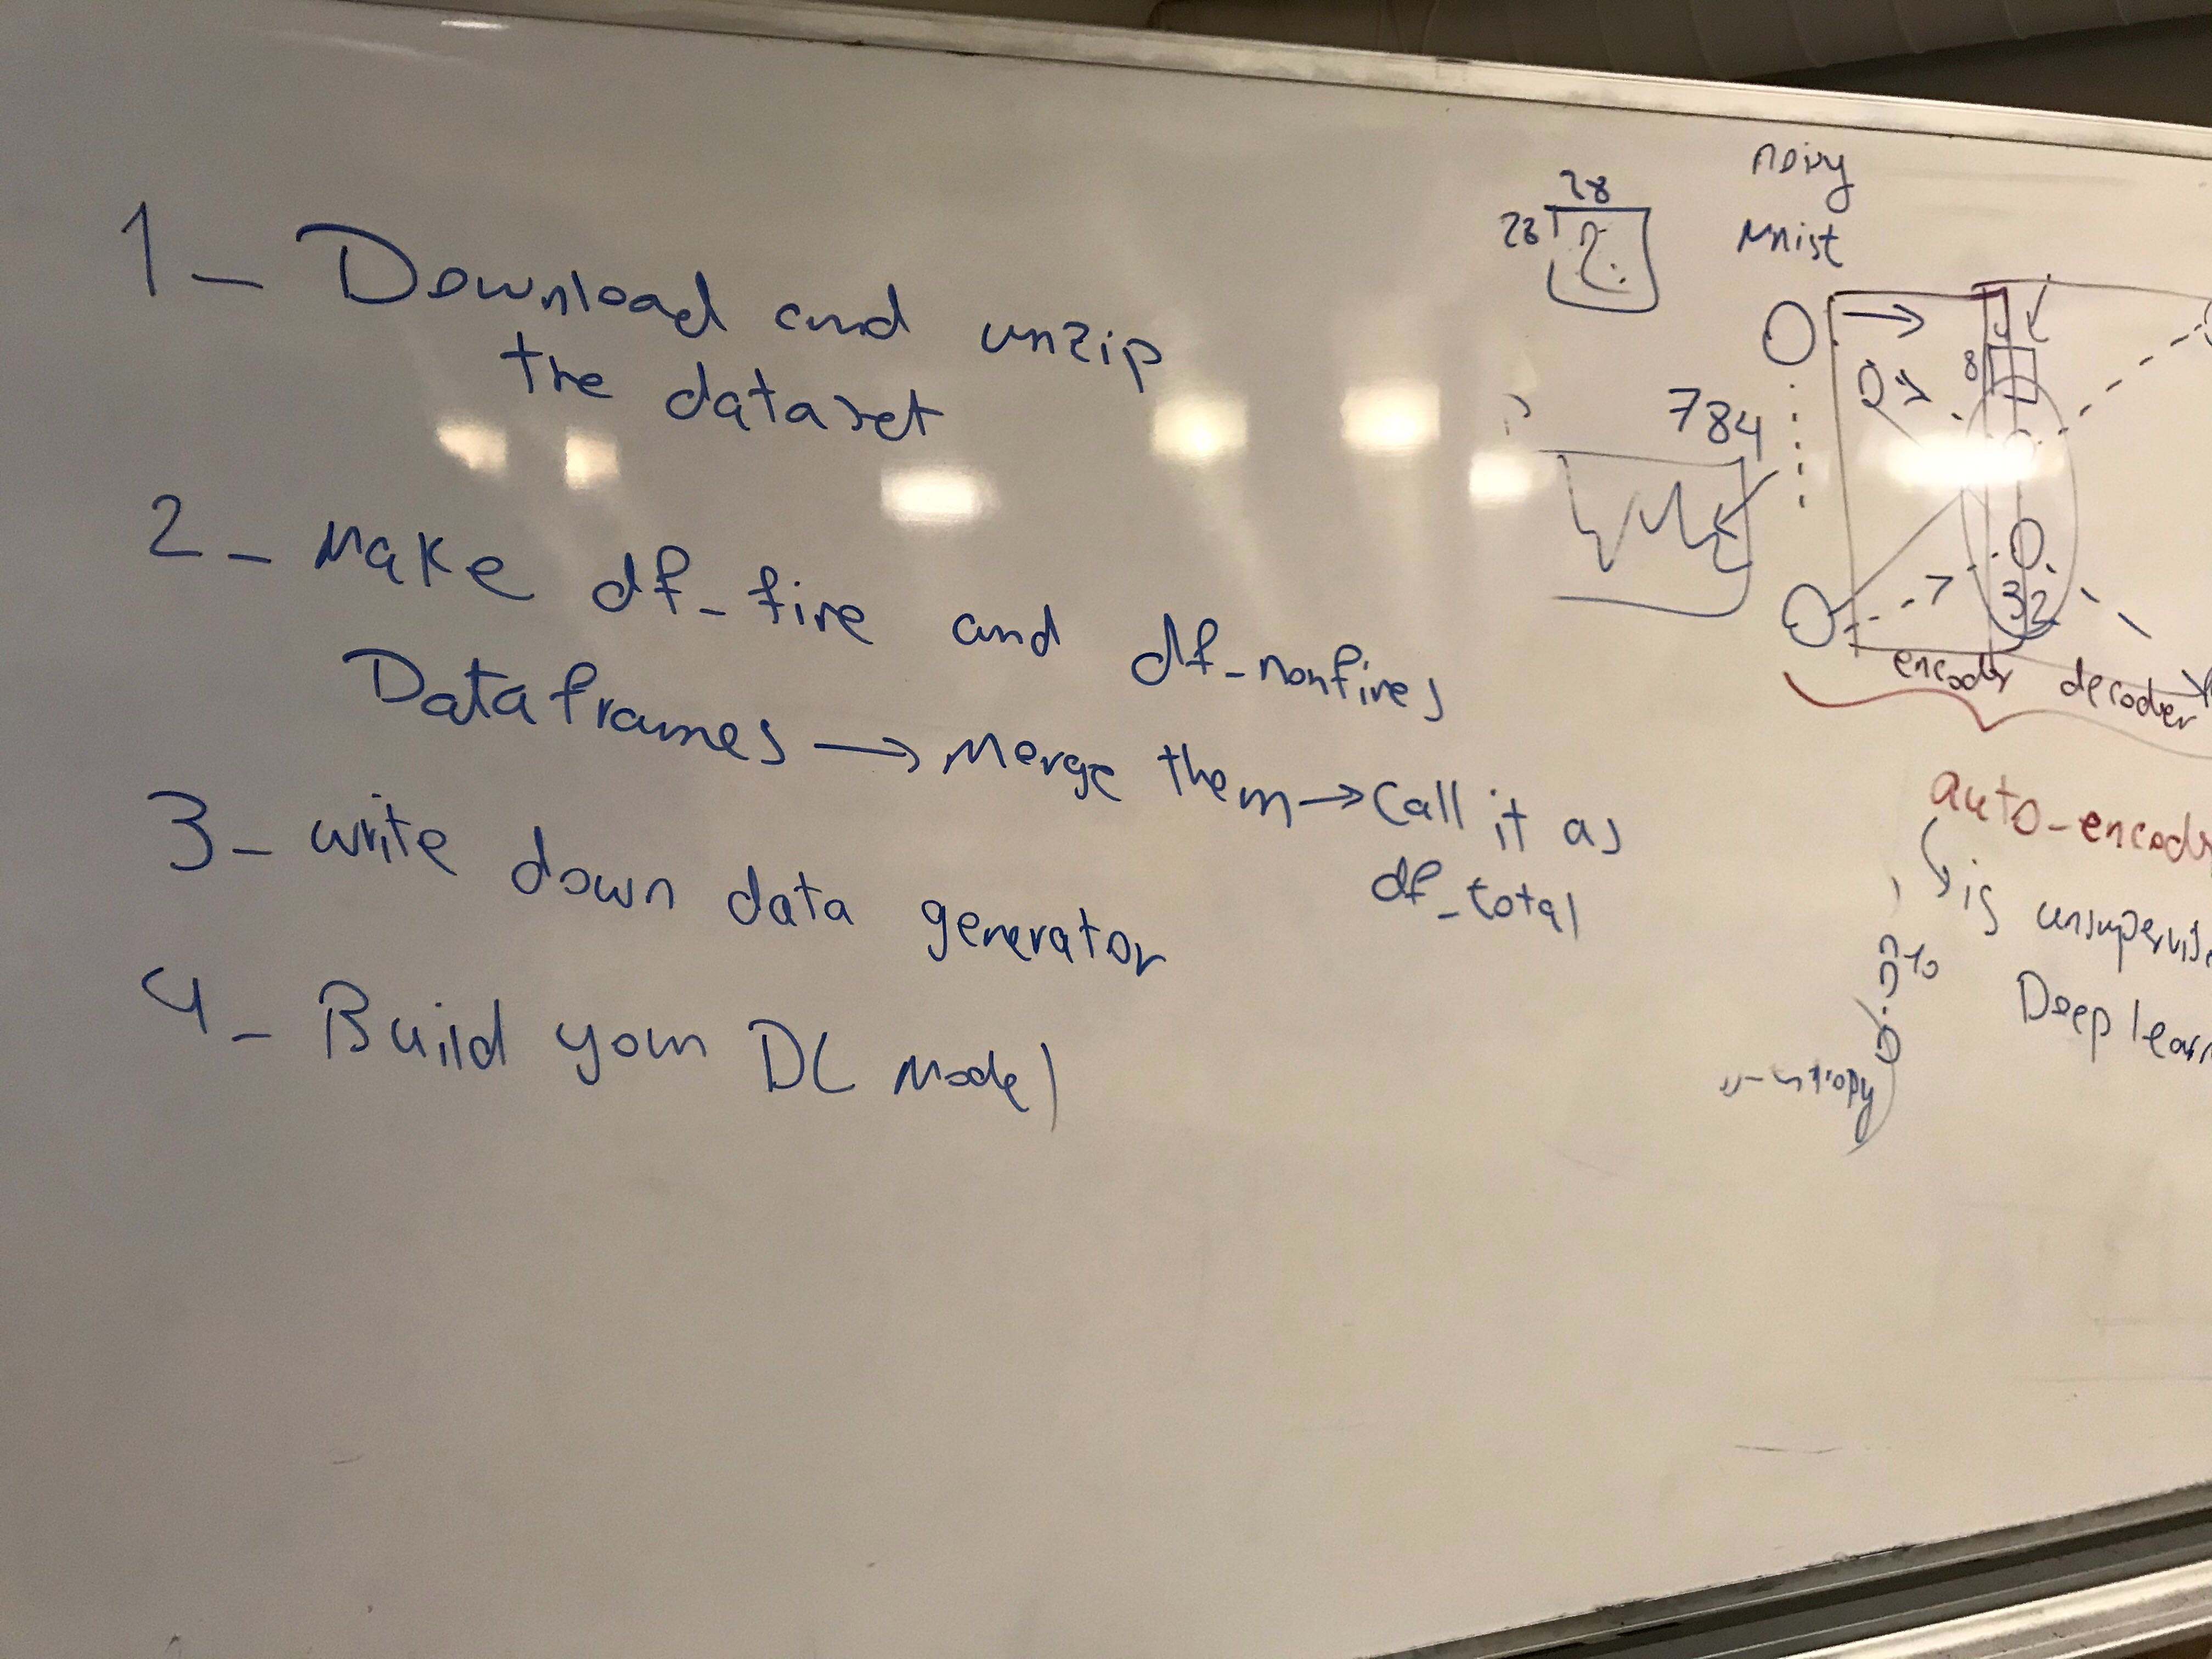 1- Download and unzip
the dataset
2- Make df_fire and df_nonfires
Dataframes → Merge them → Call it as
df_total
3- write down data generator
4- Build your DL Model
28
28
2
noisy
Mnist
784
8
32
encoder decoder
auto-encoder
is unsupervise
Deep learn